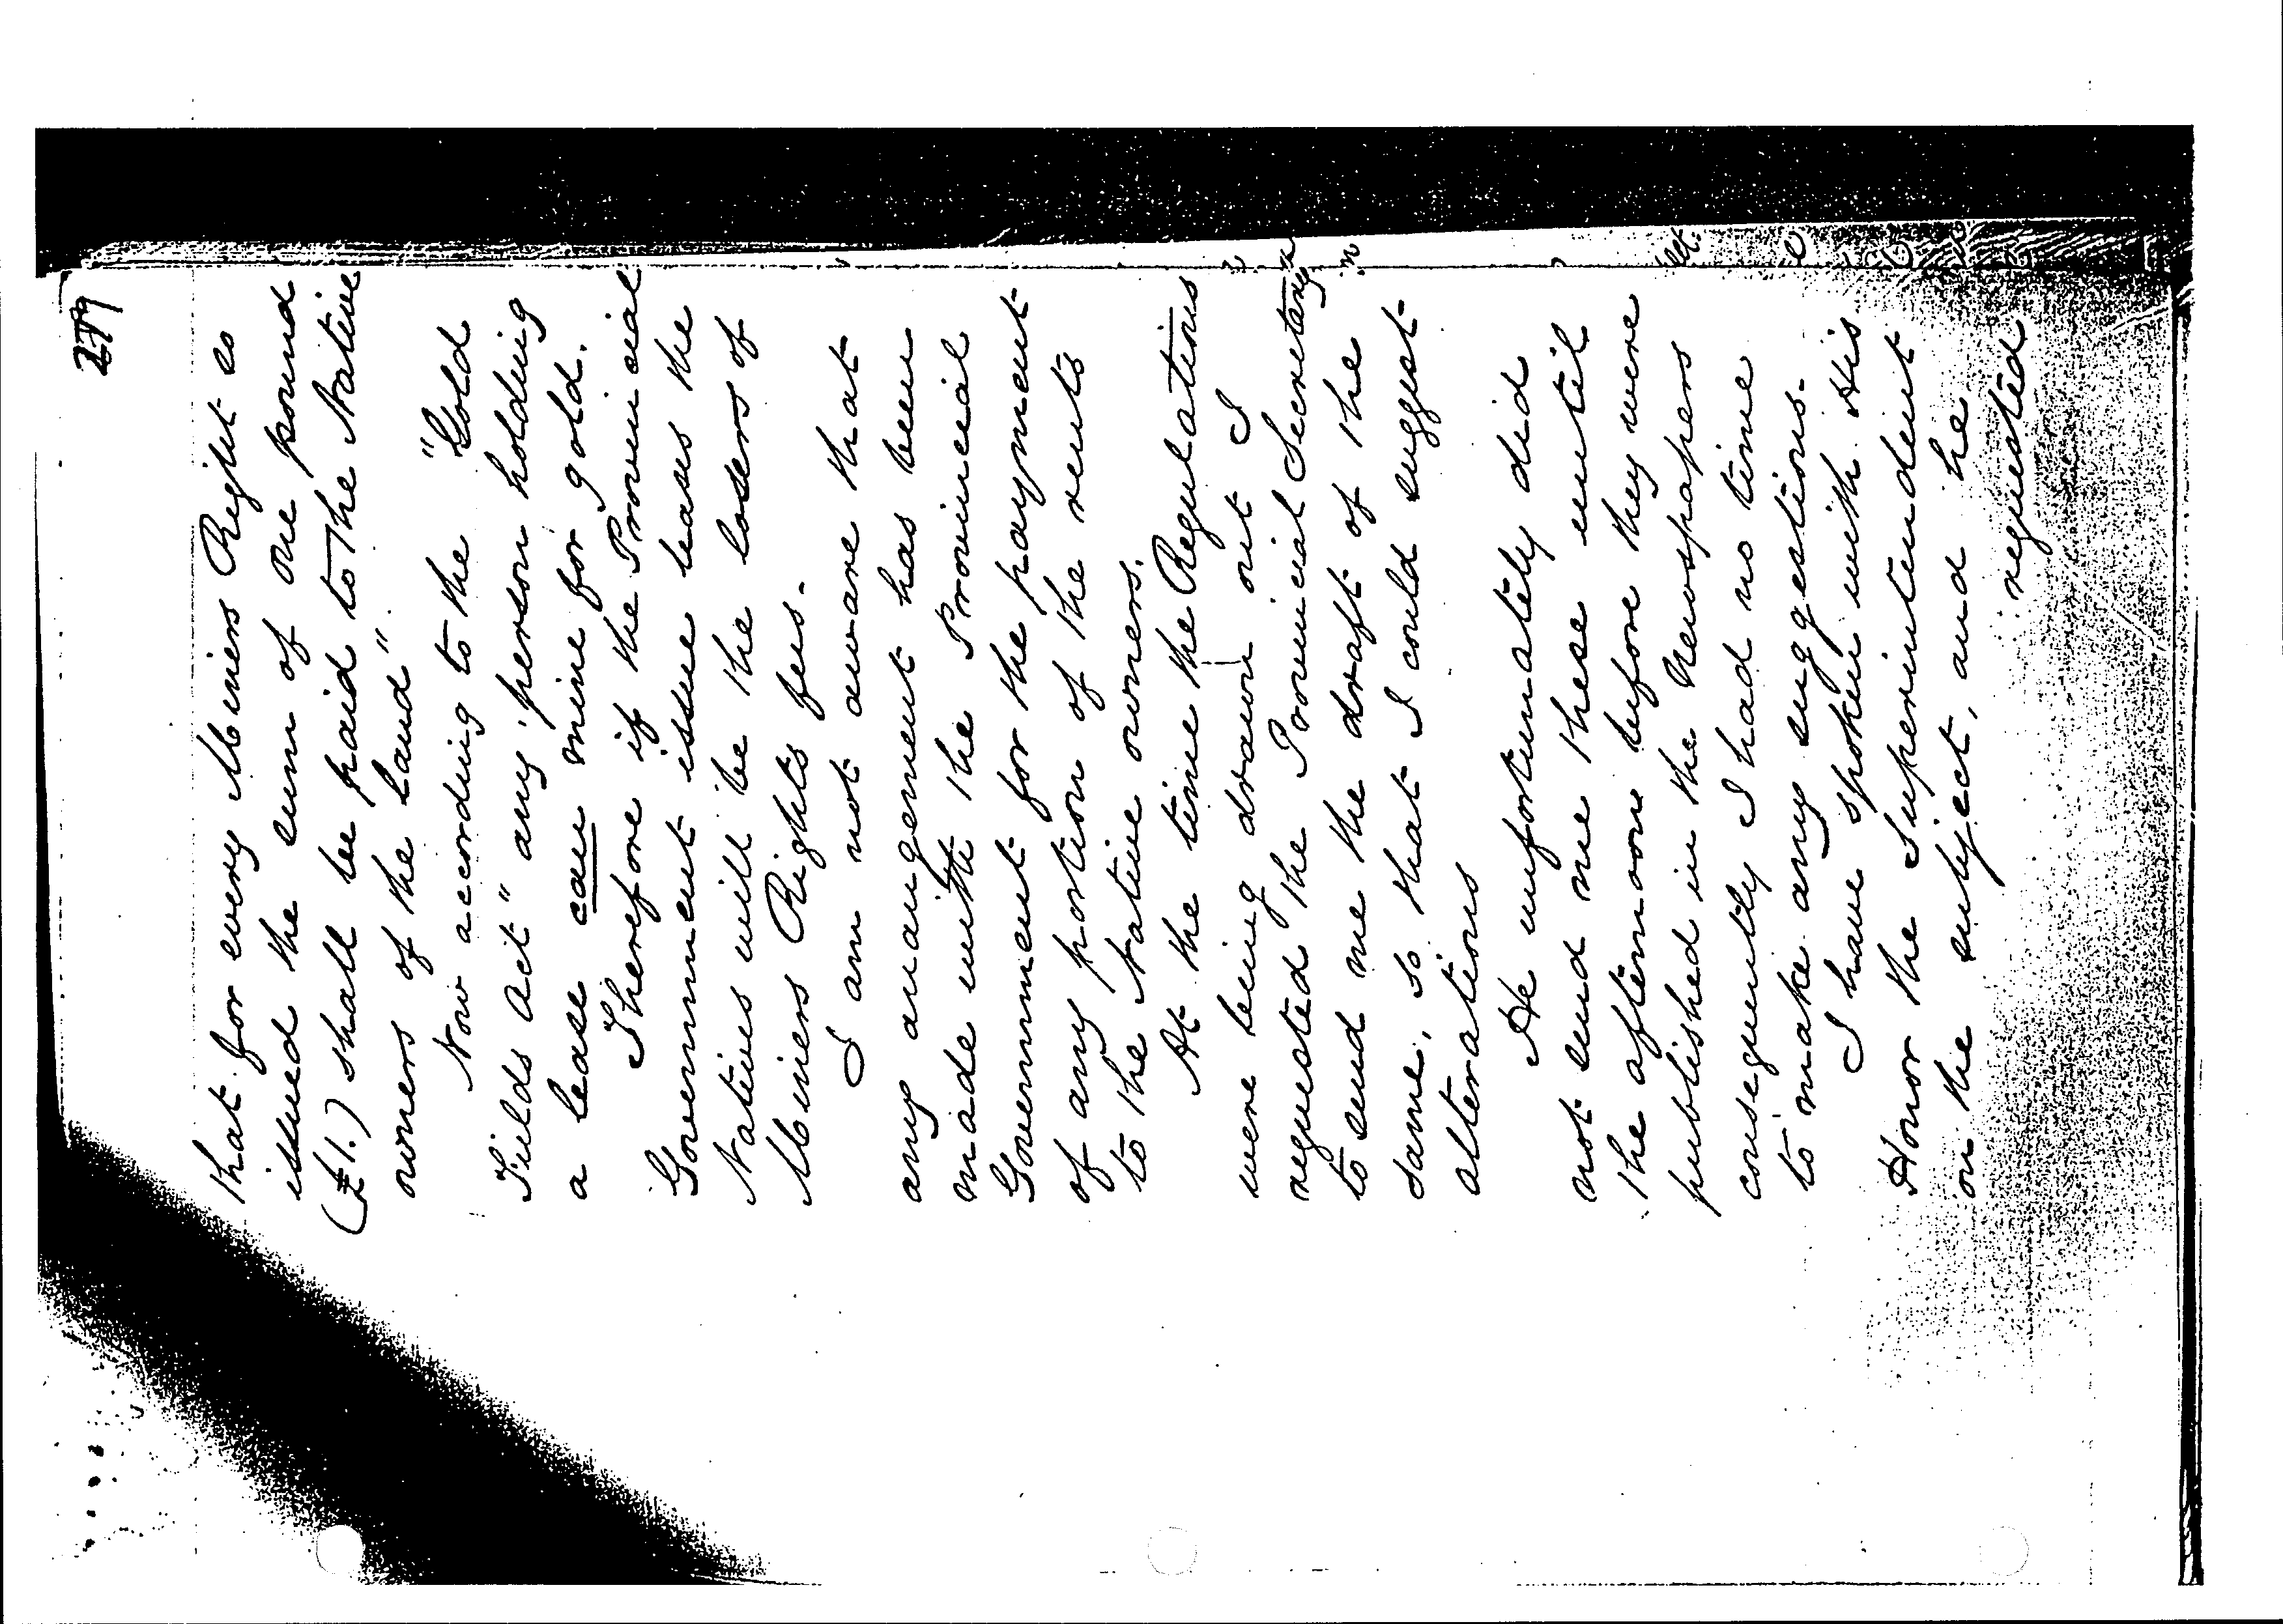 279
that for every Miners Right so
issued the sum of one pound
(£1.) shall be paid to the Native
owners of the land"
Now according to the "Gold
Fields Act" any person holding
a lease can mine for gold.
Therefore if the Provincial
Government issue leases the
Natives will be the losers of
Miners Rights fees.
I am not aware that
any arrangement has been
made with the Provincial
Government for the payment
of any portion of the rents
to the Native owners.
At the time the Regulations
were being drawn out I
requested the Provincial Secretary
to send me the draft of the
same, so that I could suggest
alterations
He unfortunately did
not send me these until
the afternoon before they were
published in the Newspapers
consequently I had no time
to make any suggestions.
I have spoken with His
Honor the Superintendent
on the subject, and he
requested